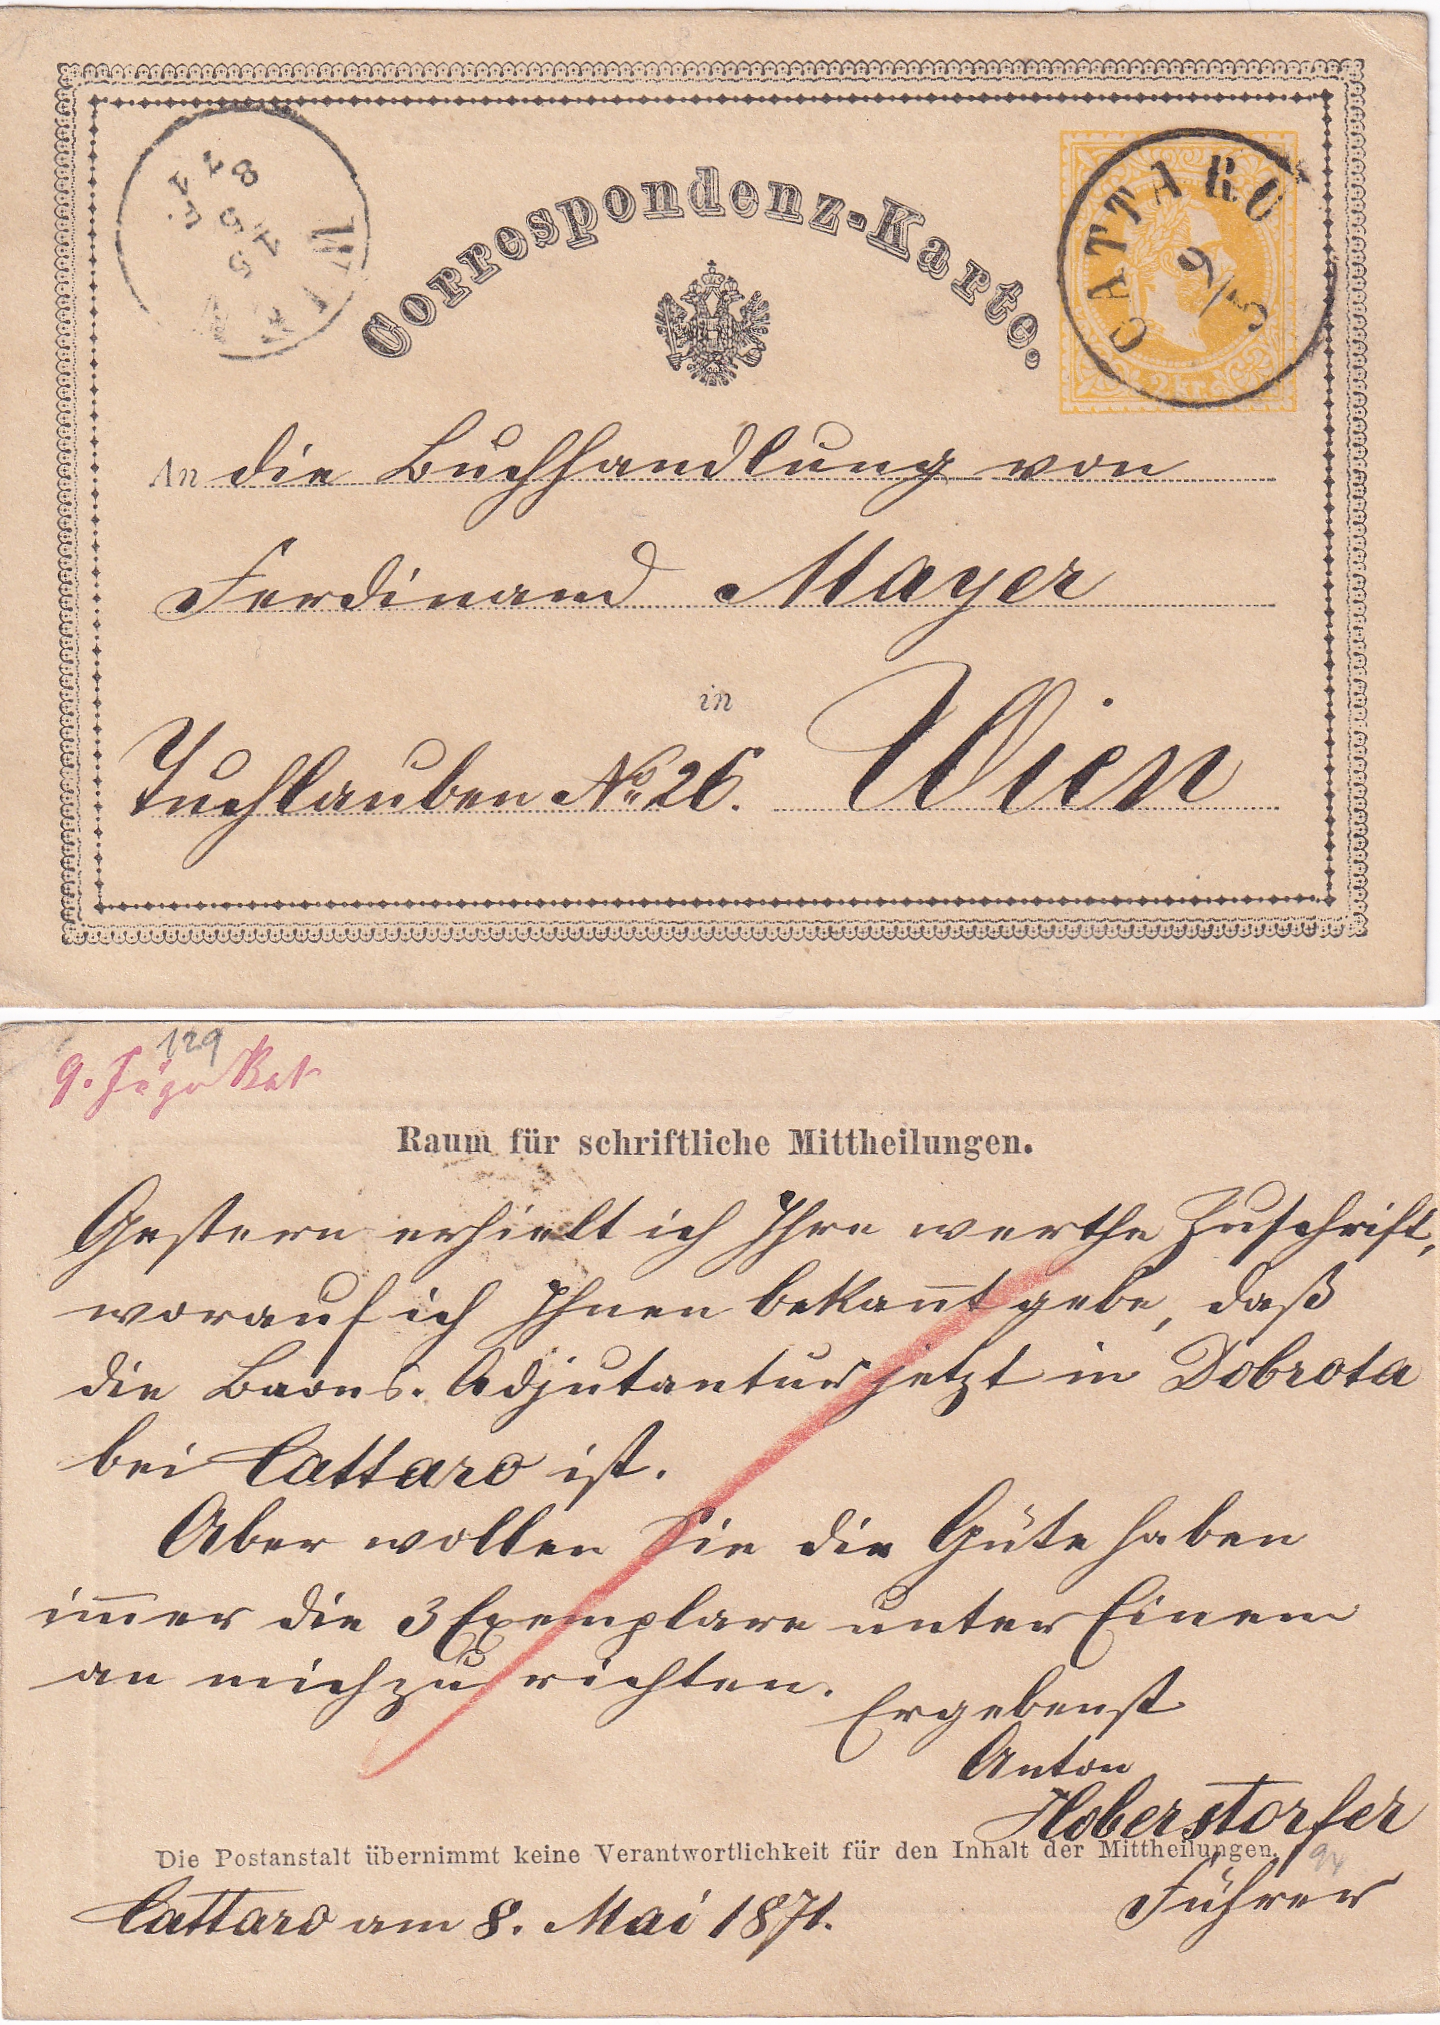 Correspondenz-Karte.
WIEN
15 5
71
CATTARO
9/5
2 kr.
An die Buchhandlung von
Ferdinand Mayer
in
Tuchlauben No 26. Wien
129
9. Jäger Bat
Raum für schriftliche Mittheilungen.
Gestern erhielt ich Ihre werthe Zuschrift,
worauf ich Ihnen bekan̄t gebe, daß
die Baons. Adjutantur jetzt in Dobrota
bei Cattaro ist.
Aber wollen Sie die Güte haben
im̄er die 3 Exemplare unter Einem
an mich zu richten.
Ergebenst
Anton
Hoberstorfer
Die Postanstalt übernimmt keine Verantwortlichkeit für den Inhalt der Mittheilungen.
Führer
Cattaro am 8. Mai 1871.